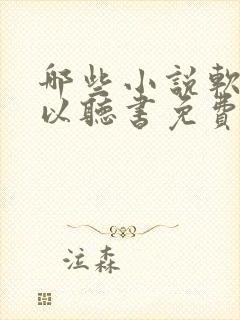 哪些小說軟
以聽書免費
泣森